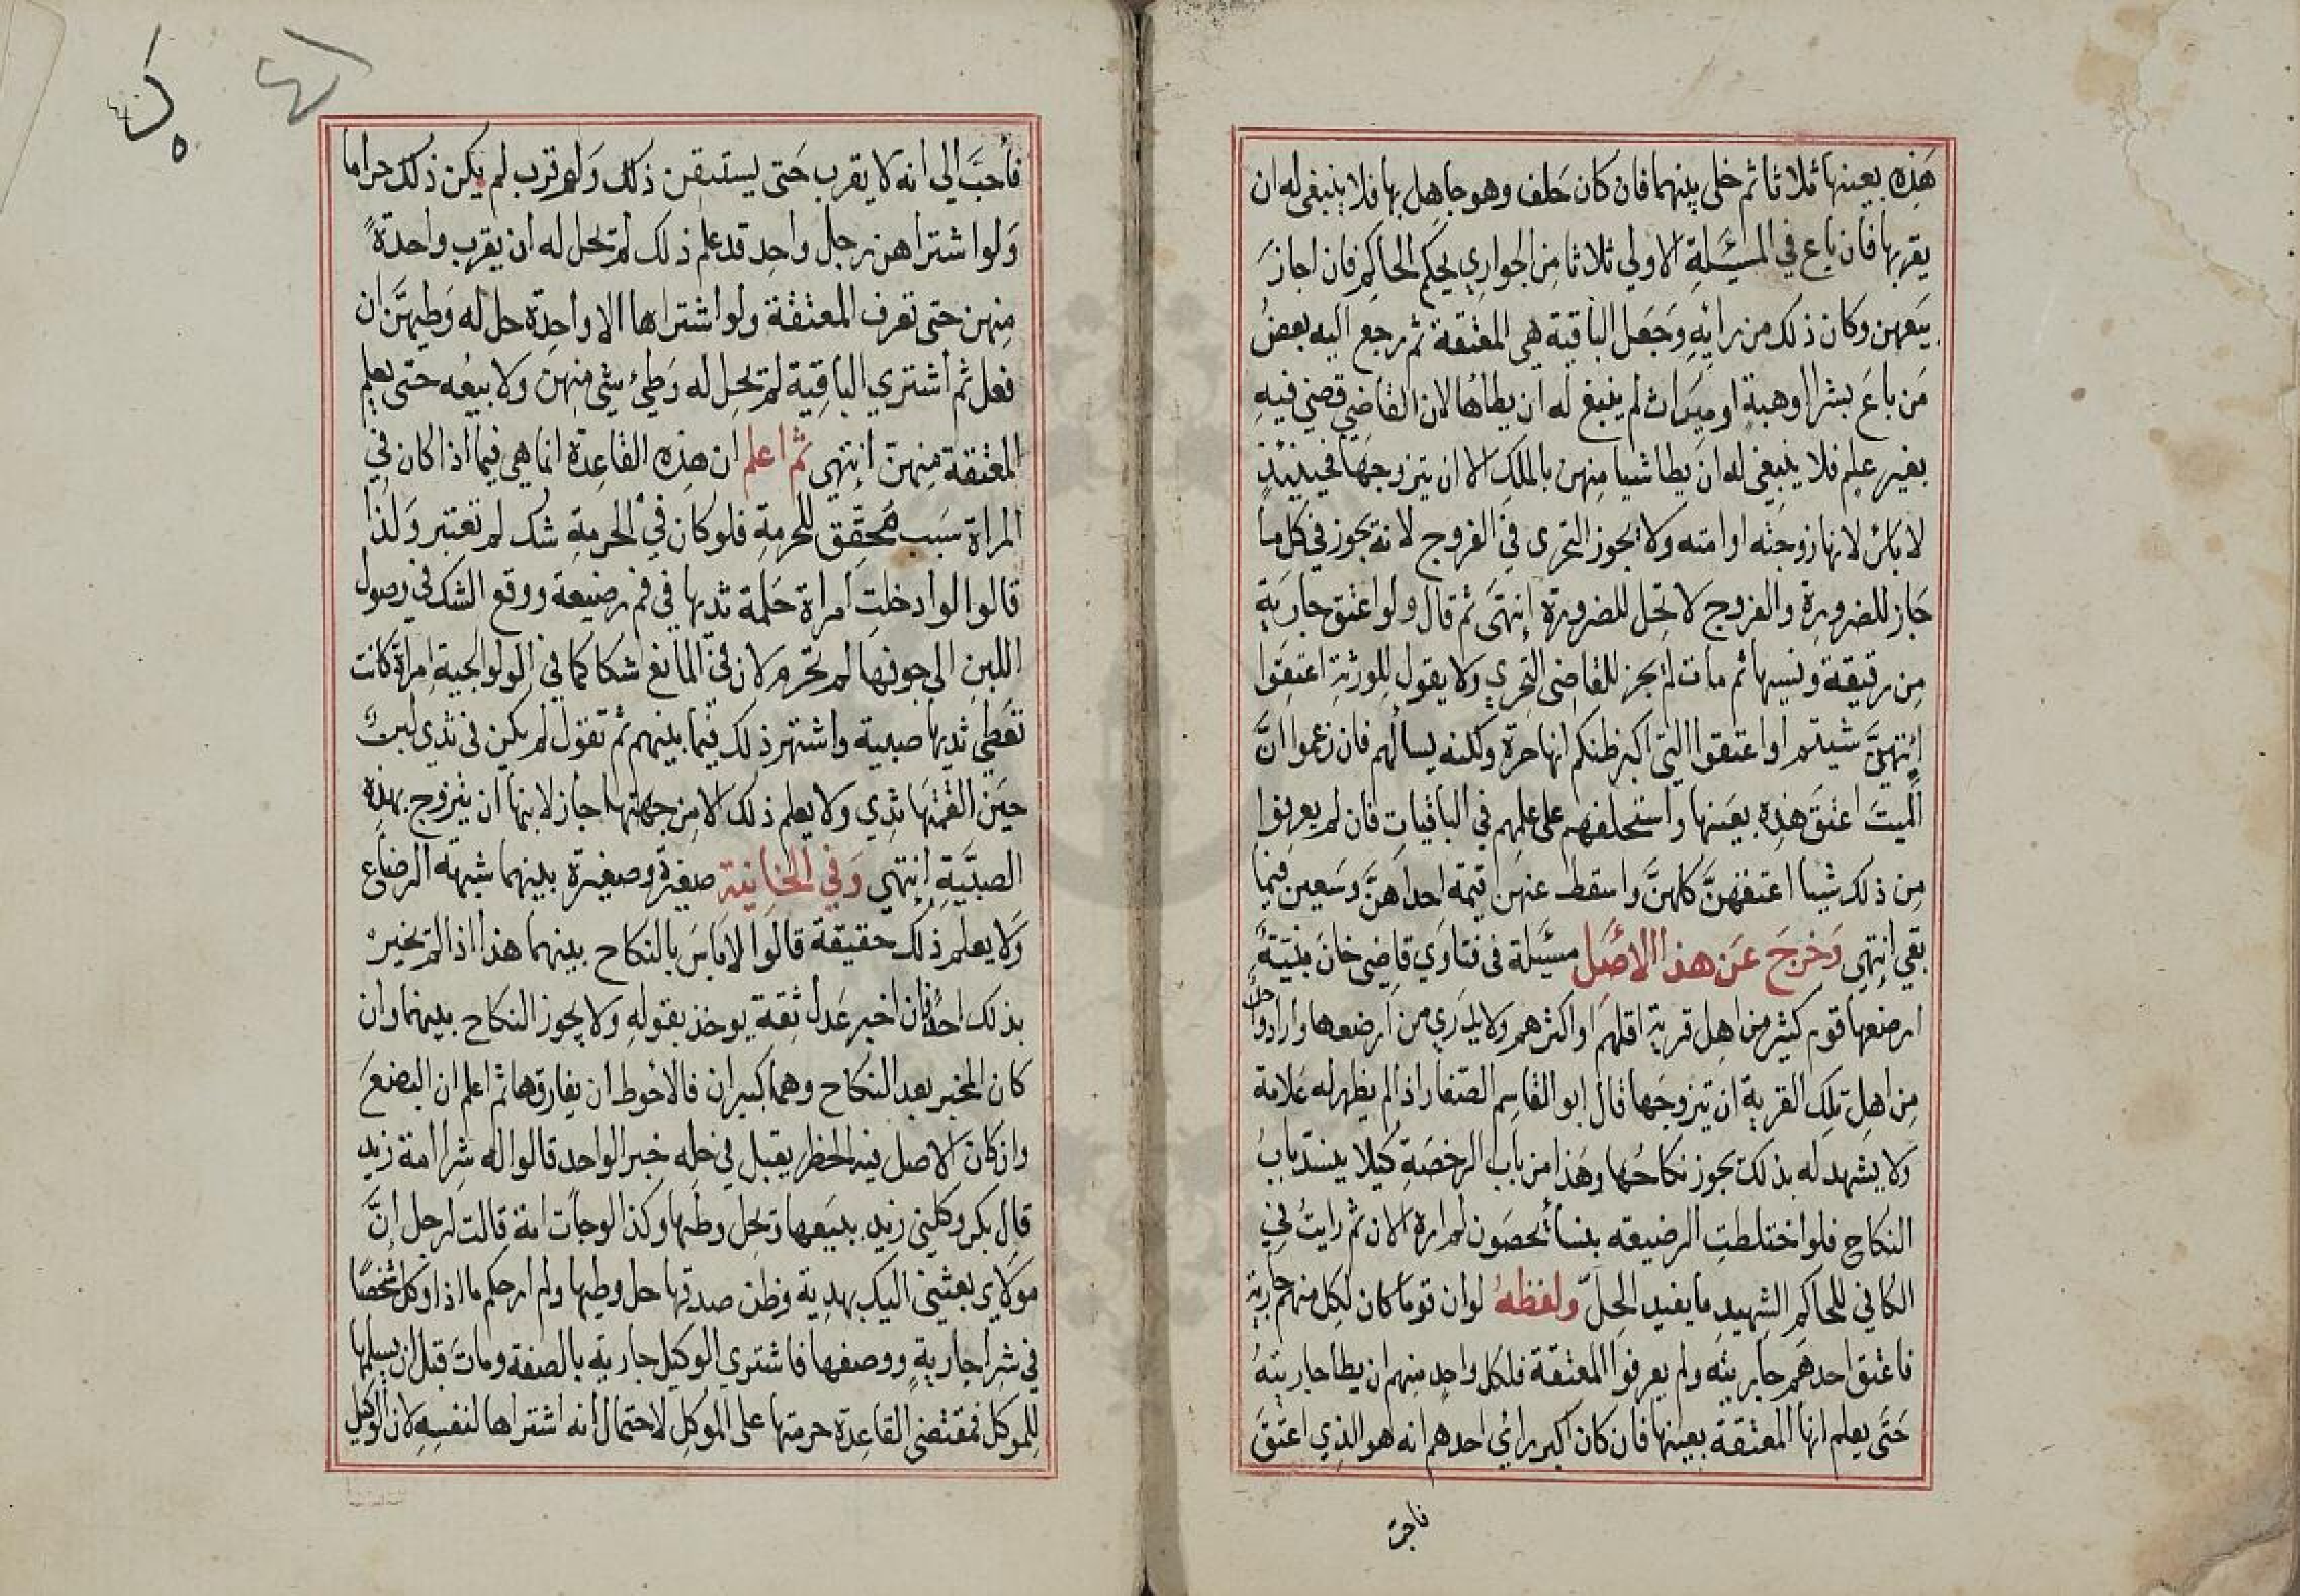 هَذِه بعينها ثلاثا ثم خلى بينهما فان كان حَلف وهو جاهِل بها فلا ينبغي له ان
يقربها فان باع في المسَئلةِ الاولي ثلاثا مِن الجوارِي بحكم الحاكم فان اجازَ
بيَعهن وكان ذلك من رائِهِ وَجَعَل الباقية هي المعتقة ثم رجع اليه بعضُ
مَن باعَ بشرا اوهبةٍ او ميراث لم ينبغِ له ان يطاهُا لان القاضِي قضي فيهِ
بغير علم فلا ينبغي له ان يطا شيا منهن بالملك الا ان يتزوجهَا فحينئذٍ
لا باس لانها زوجته او امته وَلا يجوز التحرى في الفروج لانه يجوز في كل ما
جَاز للضرورةِ والفروج لا تحِل للضرورة إنتهَى ثم قال ولو اعتق جاريَة
مِن رقيقه ونسيها ثم مات لم يجز للقاضِى التحرِي ولا يقول لِلورثةِ اعتِقوا
اَيّتهنَّ شيتم او اعتقوا التي اكبر ظنكم انها حرة ولكنه يسالُهم فان زعموا انَّ
الميتَ اعتقَ هذِه بعَينها واستحلفهم على علمِهم في الباقياتِ فان لم يعرِفوا
مِن ذلك شيا اعتقهنَّ كلهنَّ واسقط عنهن قيمة احداهنَّ وسَعين فيما
بقي إنتهي وَخرجَ عَن هذا الاصَل مسئلة في فتاوَي قاضِى خانَ بنية
ارضعها قوم كثير من اهِل قرية اقلهم او اكثرهم ولا يدرِي من ارضعها وارادوا حد
مِن اهلِ تلك القريةِ ان يتزوجَها قال ابو القاسِم الصَّفار اذا لم يظهر له عَلامة
وَلا يشهد له بذلك يجوز نكاحُها وهَذا من باب الرخصَة كيلا ينسَد باب
النكاح فلو اختلطتِ الرضيعه بنسَأ يحصَون لم اره الان ثم رايتُ في
الكافي للحاكمِ الشهيدِ ما يفيد الحِلّ ولفظهُ لو ان قومًا كان لكل منهم جارية
فاعتق احدهَم جاريته ولم يعرفوا المعتقة فلكل واحدٍ منهم ان يطا جاريتهُ
حَتى يعلم انها المعتقة بعينها فان كان اكبر رائي احدهم انه هو الذِي اعتقَ
فاحب
فأحَبّ الي انه لا يقرب حَتى يستيقِن ذلك وَلو قرب لم يكن ذلك حراما
وَلوا شتراهن رجل واحِد قد علم ذلك لم تحل له ان يقرب واحدةً
مِنهن حتى تعرف المعتقة ولو اشتراها الا واحِدة حل له وَطيهنَّ ان
فعل ثم اشتري الباقِية لم تحِل له وَطئ شئ منهن ولا بيعُه حتى يعلم
المعتقة مِنهنّ إنتهي ثم اعلم ان هذِه القاعِدة انما هي فيما اذا كان فِي
المراة سَبب مُحقَق للحرمةِ فلو كان فيْ الحرمةِ شك لم تعتبر وَلذا
قالوا لوادخلتِ امراة حَلمة ثديها في فم رضيعة ووقع الشك في وصول
اللبنِ الي جوفها لم تحرم لان في المانع شكا كما في الولوالجيةِ امراة كانت
تعَطي ثديها صبية واشتهر ذلك فيما بينهم ثم تقول لم يكن في ثدي لبنٌ
حيَن القمتها ثدِي ولا يعلم ذلك الا مِن جهتها جاز لابنها ان يتزوج بهذِه
الصبيَّةِ إنتهي وَفي الخانية صغيرُ وصغيرة بينهما شبهة الرضاع
وَلا يعلم ذلك حقيقة قالوا لا بَاسَ بالنكاح بينهما هذا اذا لم يخبرْ
بذلك احدٌ فان اخبر عَدل ثقة يوخذ بقولهِ ولا يجوز النكاح بينهما وان
كان المخبر بعد النكاح وهما كبيران فالاحوط ان يفارقها ثم اعلم ان البضعَ
وان كان الاصل فيه الحظر يقبل في حِلِه خبر الواحد قالوا له شِرا امة زيد
قال بكر وكلني زيد ببيَعها تحِل وطئها وكذا لو جأت امة قالت لرجل انَّ
مولاي بعثني اليك بهديةٍ وظن صدقها حل وطيها ولم ار حكم ما اذا وكل شخصًا
في شِرا جاريةٍ ووصفها فاشتري الوكيل جارية بالصفة ومات قبل ان يسلمها
لِلموكل فمقتضي القاعِدة حرمتها على الموكلِ لاحتمال انه اشتراها لنفسِهِ لان الوكيل